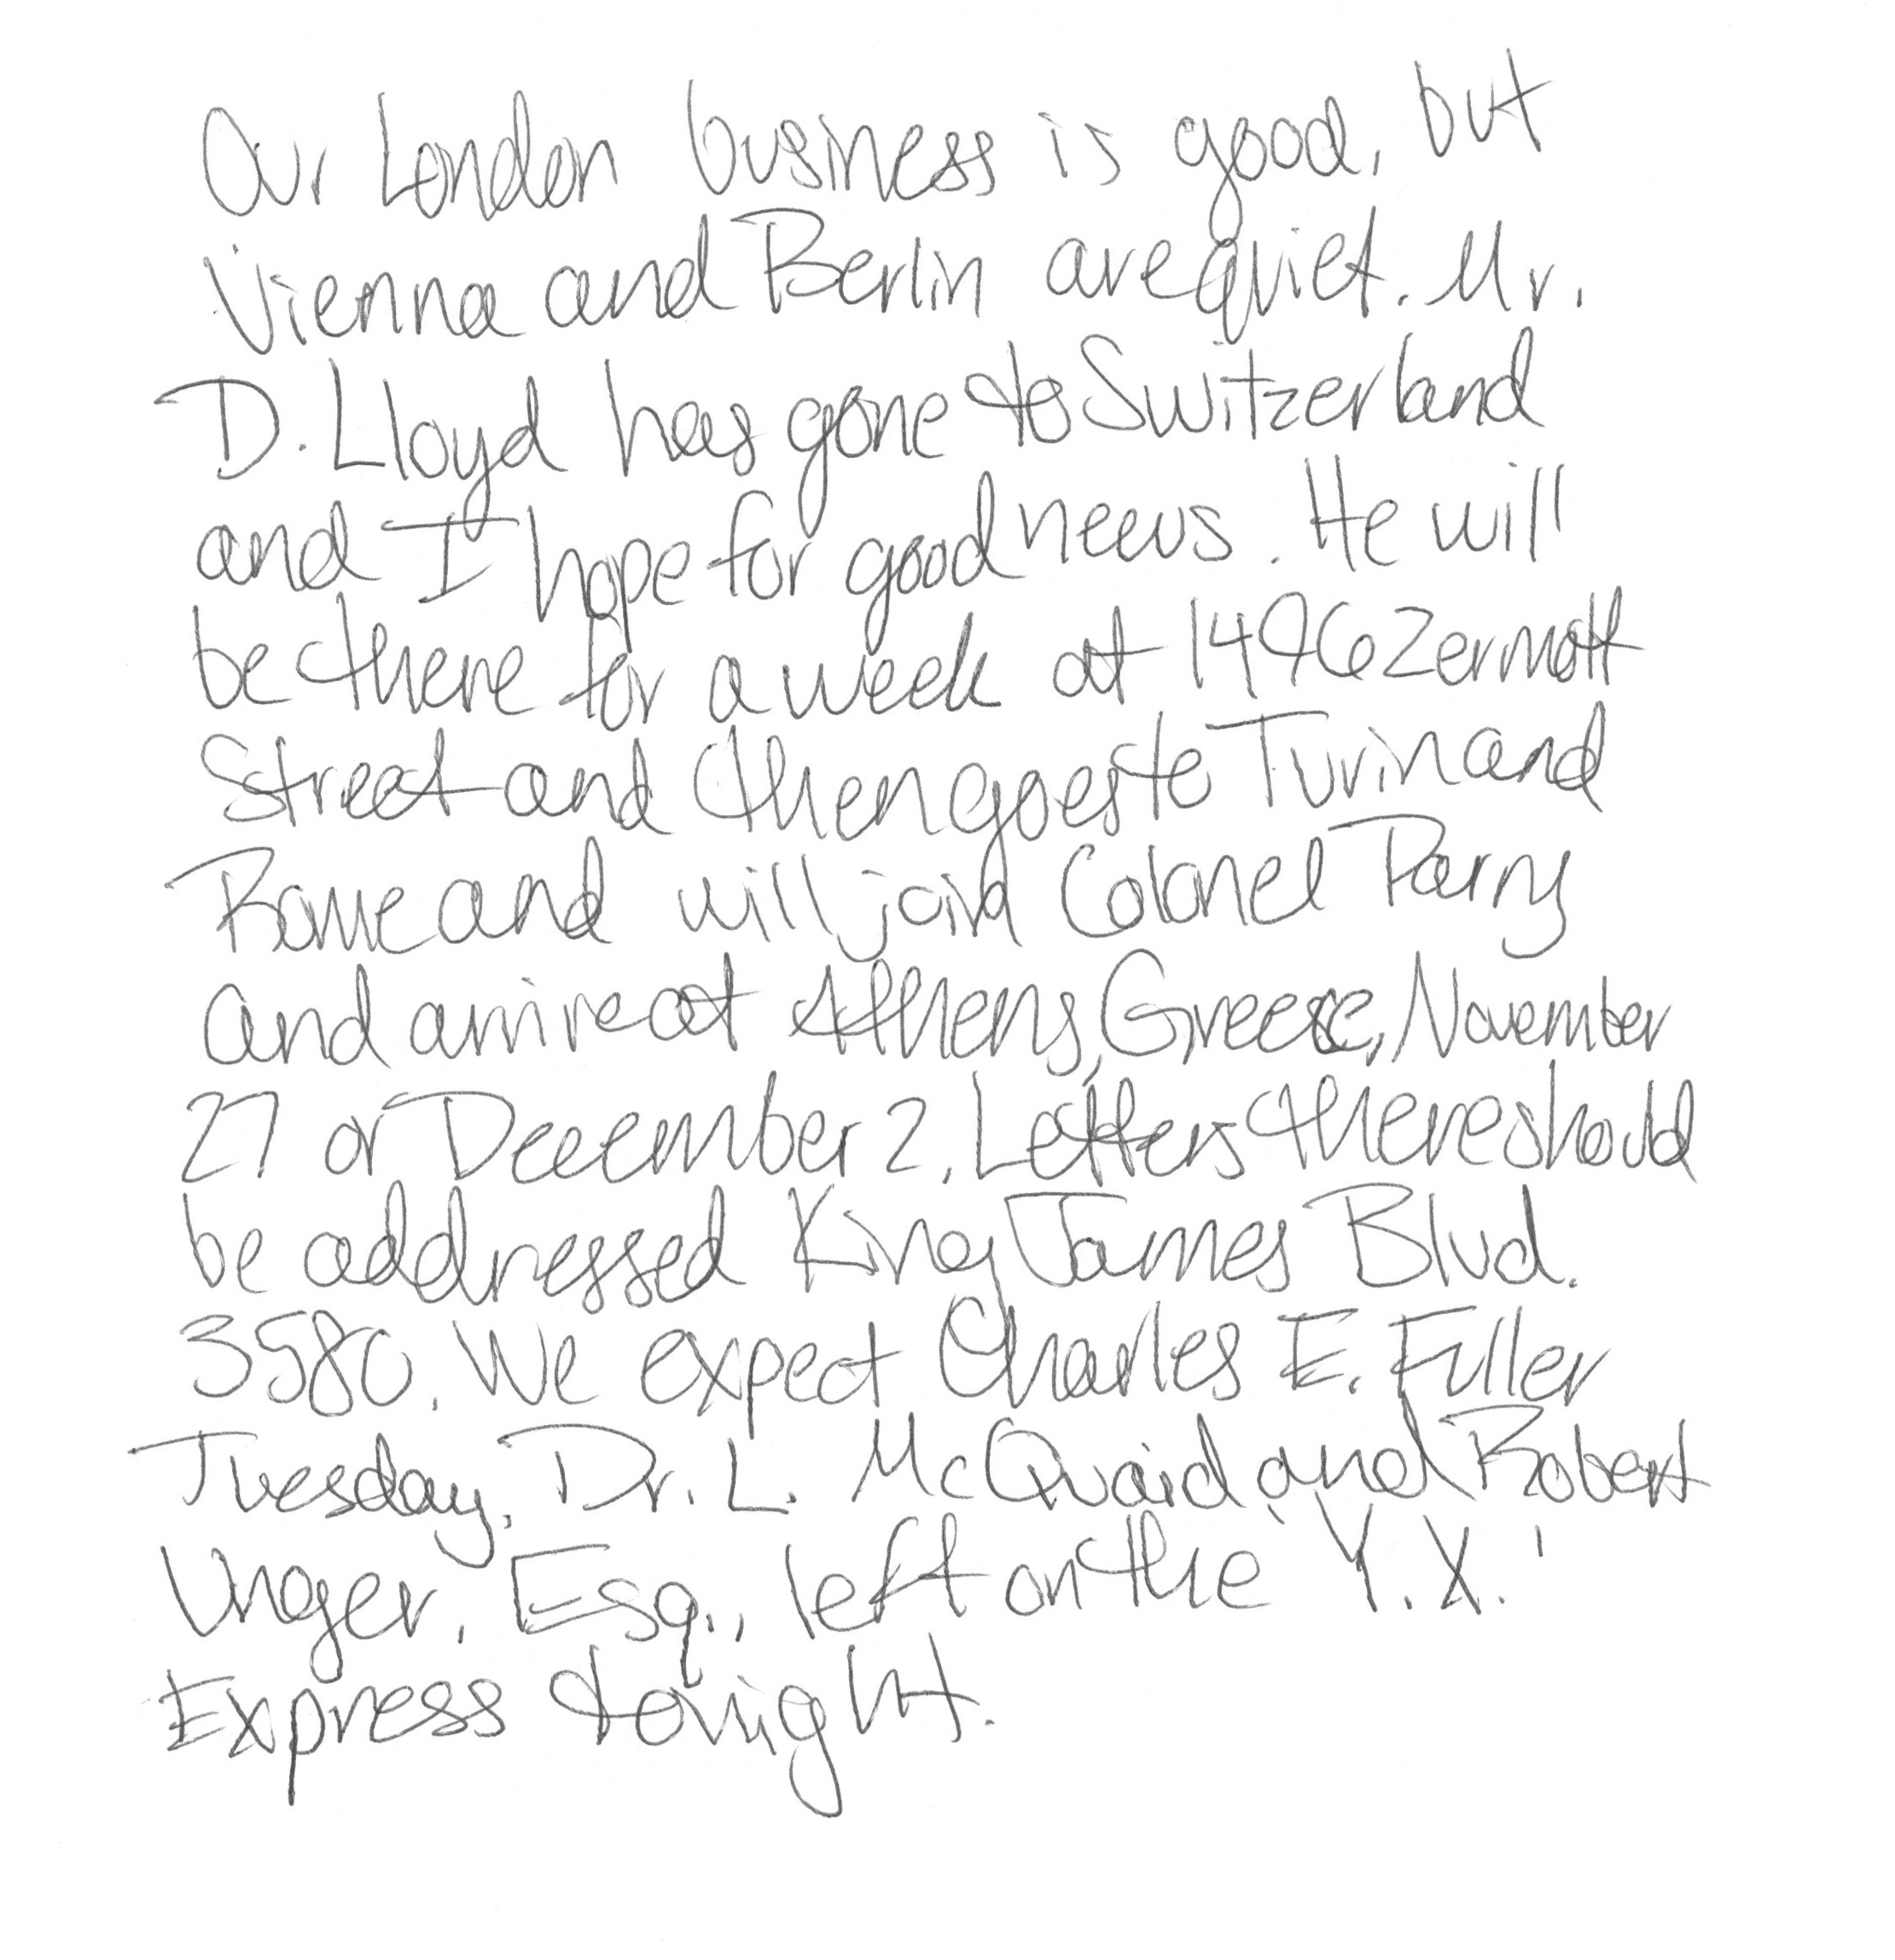 Our London business is good, but
Vienna and Berlin are quiet. Mr.
D. Lloyd has gone to Switzerland
and I hope for good news. He will
be there for a week at 1496 Zermott
Street and then goes to Turin and
Rome and will join Colonel Parry
and arrive at Athens, Greece, November
27 or December 2. Letters there should
be addressed King James Blvd.
3580. We expect Charles E. Fuller
Tuesday. Dr. L. McQuaid and Robert
Unger, Esq., left on the 'Y.X.'
Express tonight.